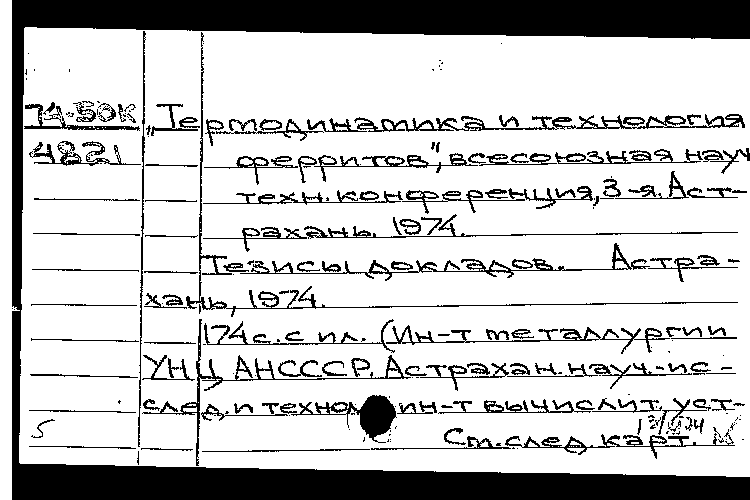 74-50к "Термодинамика и технология
4821 ферритов", всесоюзная науч
техн. конференция, 3-я. Аст-
рахань. 1974.
Тезисы докладов. Астра-
хань, 1974.
174с. с ил. (Ин-т металлургии
УНЦ АНСССР. Астрахан. науч.-ис-
след. и технол ин-т вычислит. уст-
5 См. след. карт.